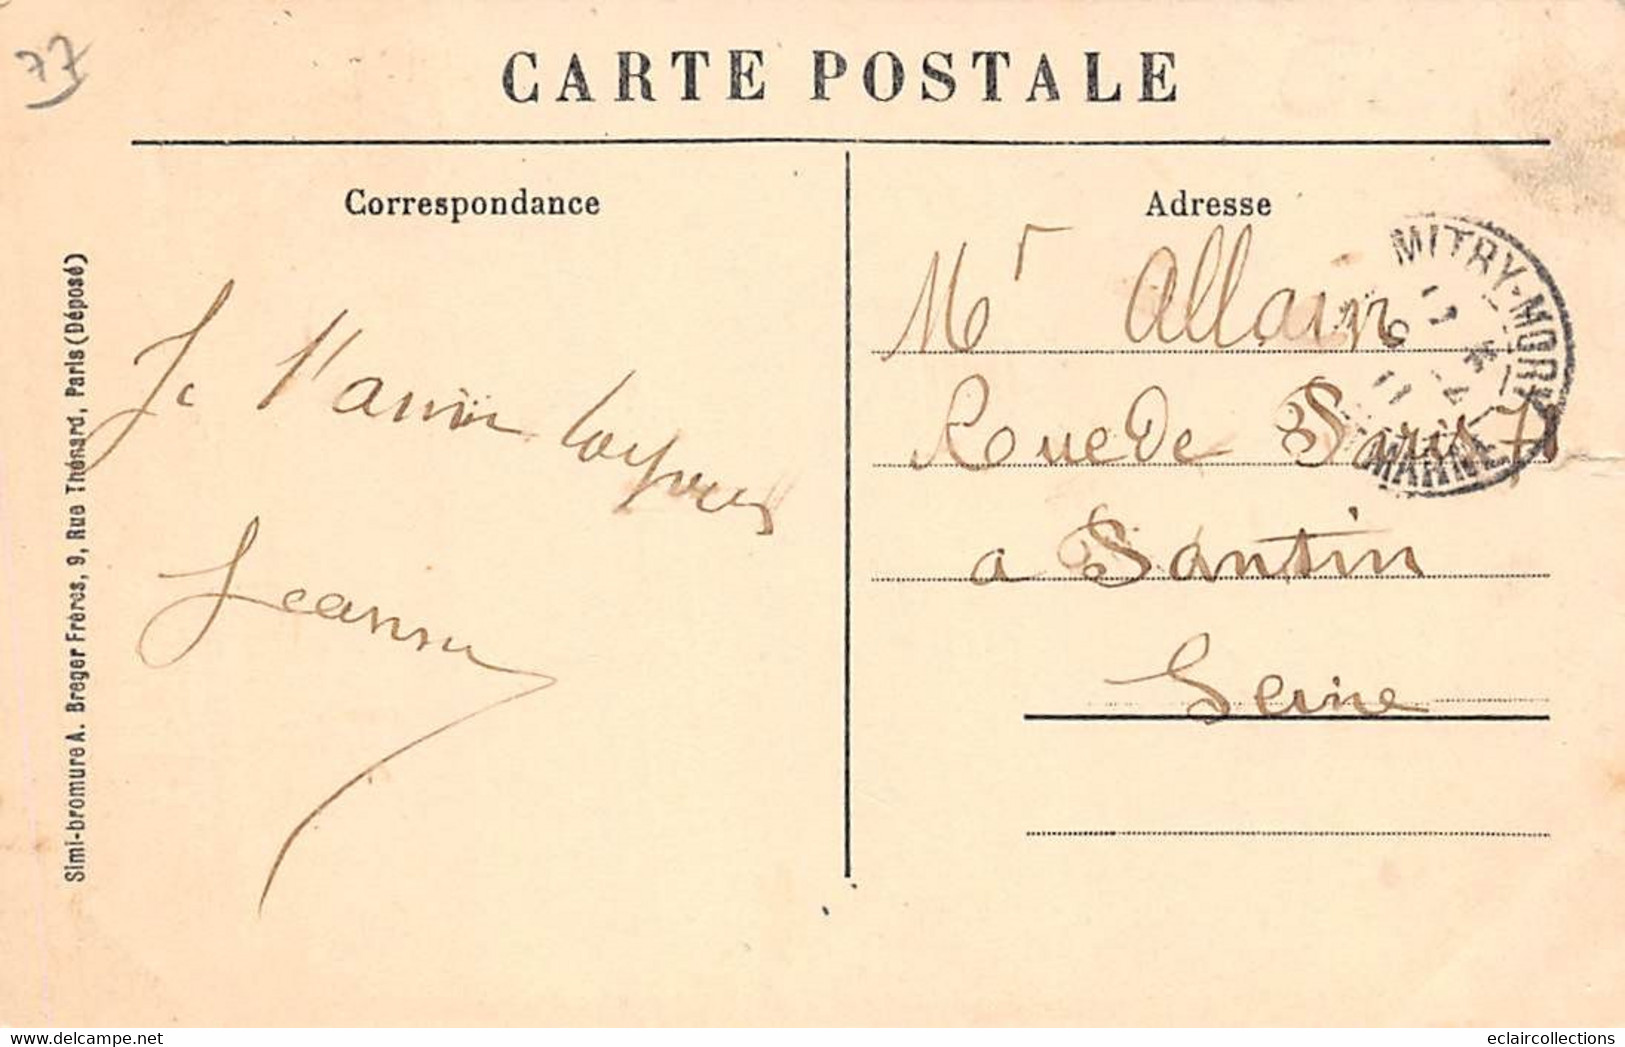 77
CARTE POSTALE
Correspondance
Adresse
Je t'aime toujours
Jeanne
Mr Allain
Rue de Paris 71
a Pantin
Seine
MITRY-MORY
MARNE
Simi-bromure A. Breger Frères, 9, Rue Thénard, Paris (Déposé)
www.delcampe.net
eclaircollections